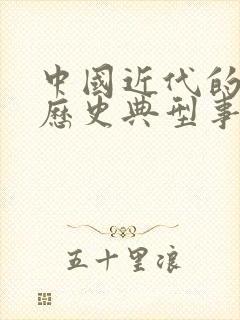 中國近代的
歷史典型事
五十里浪